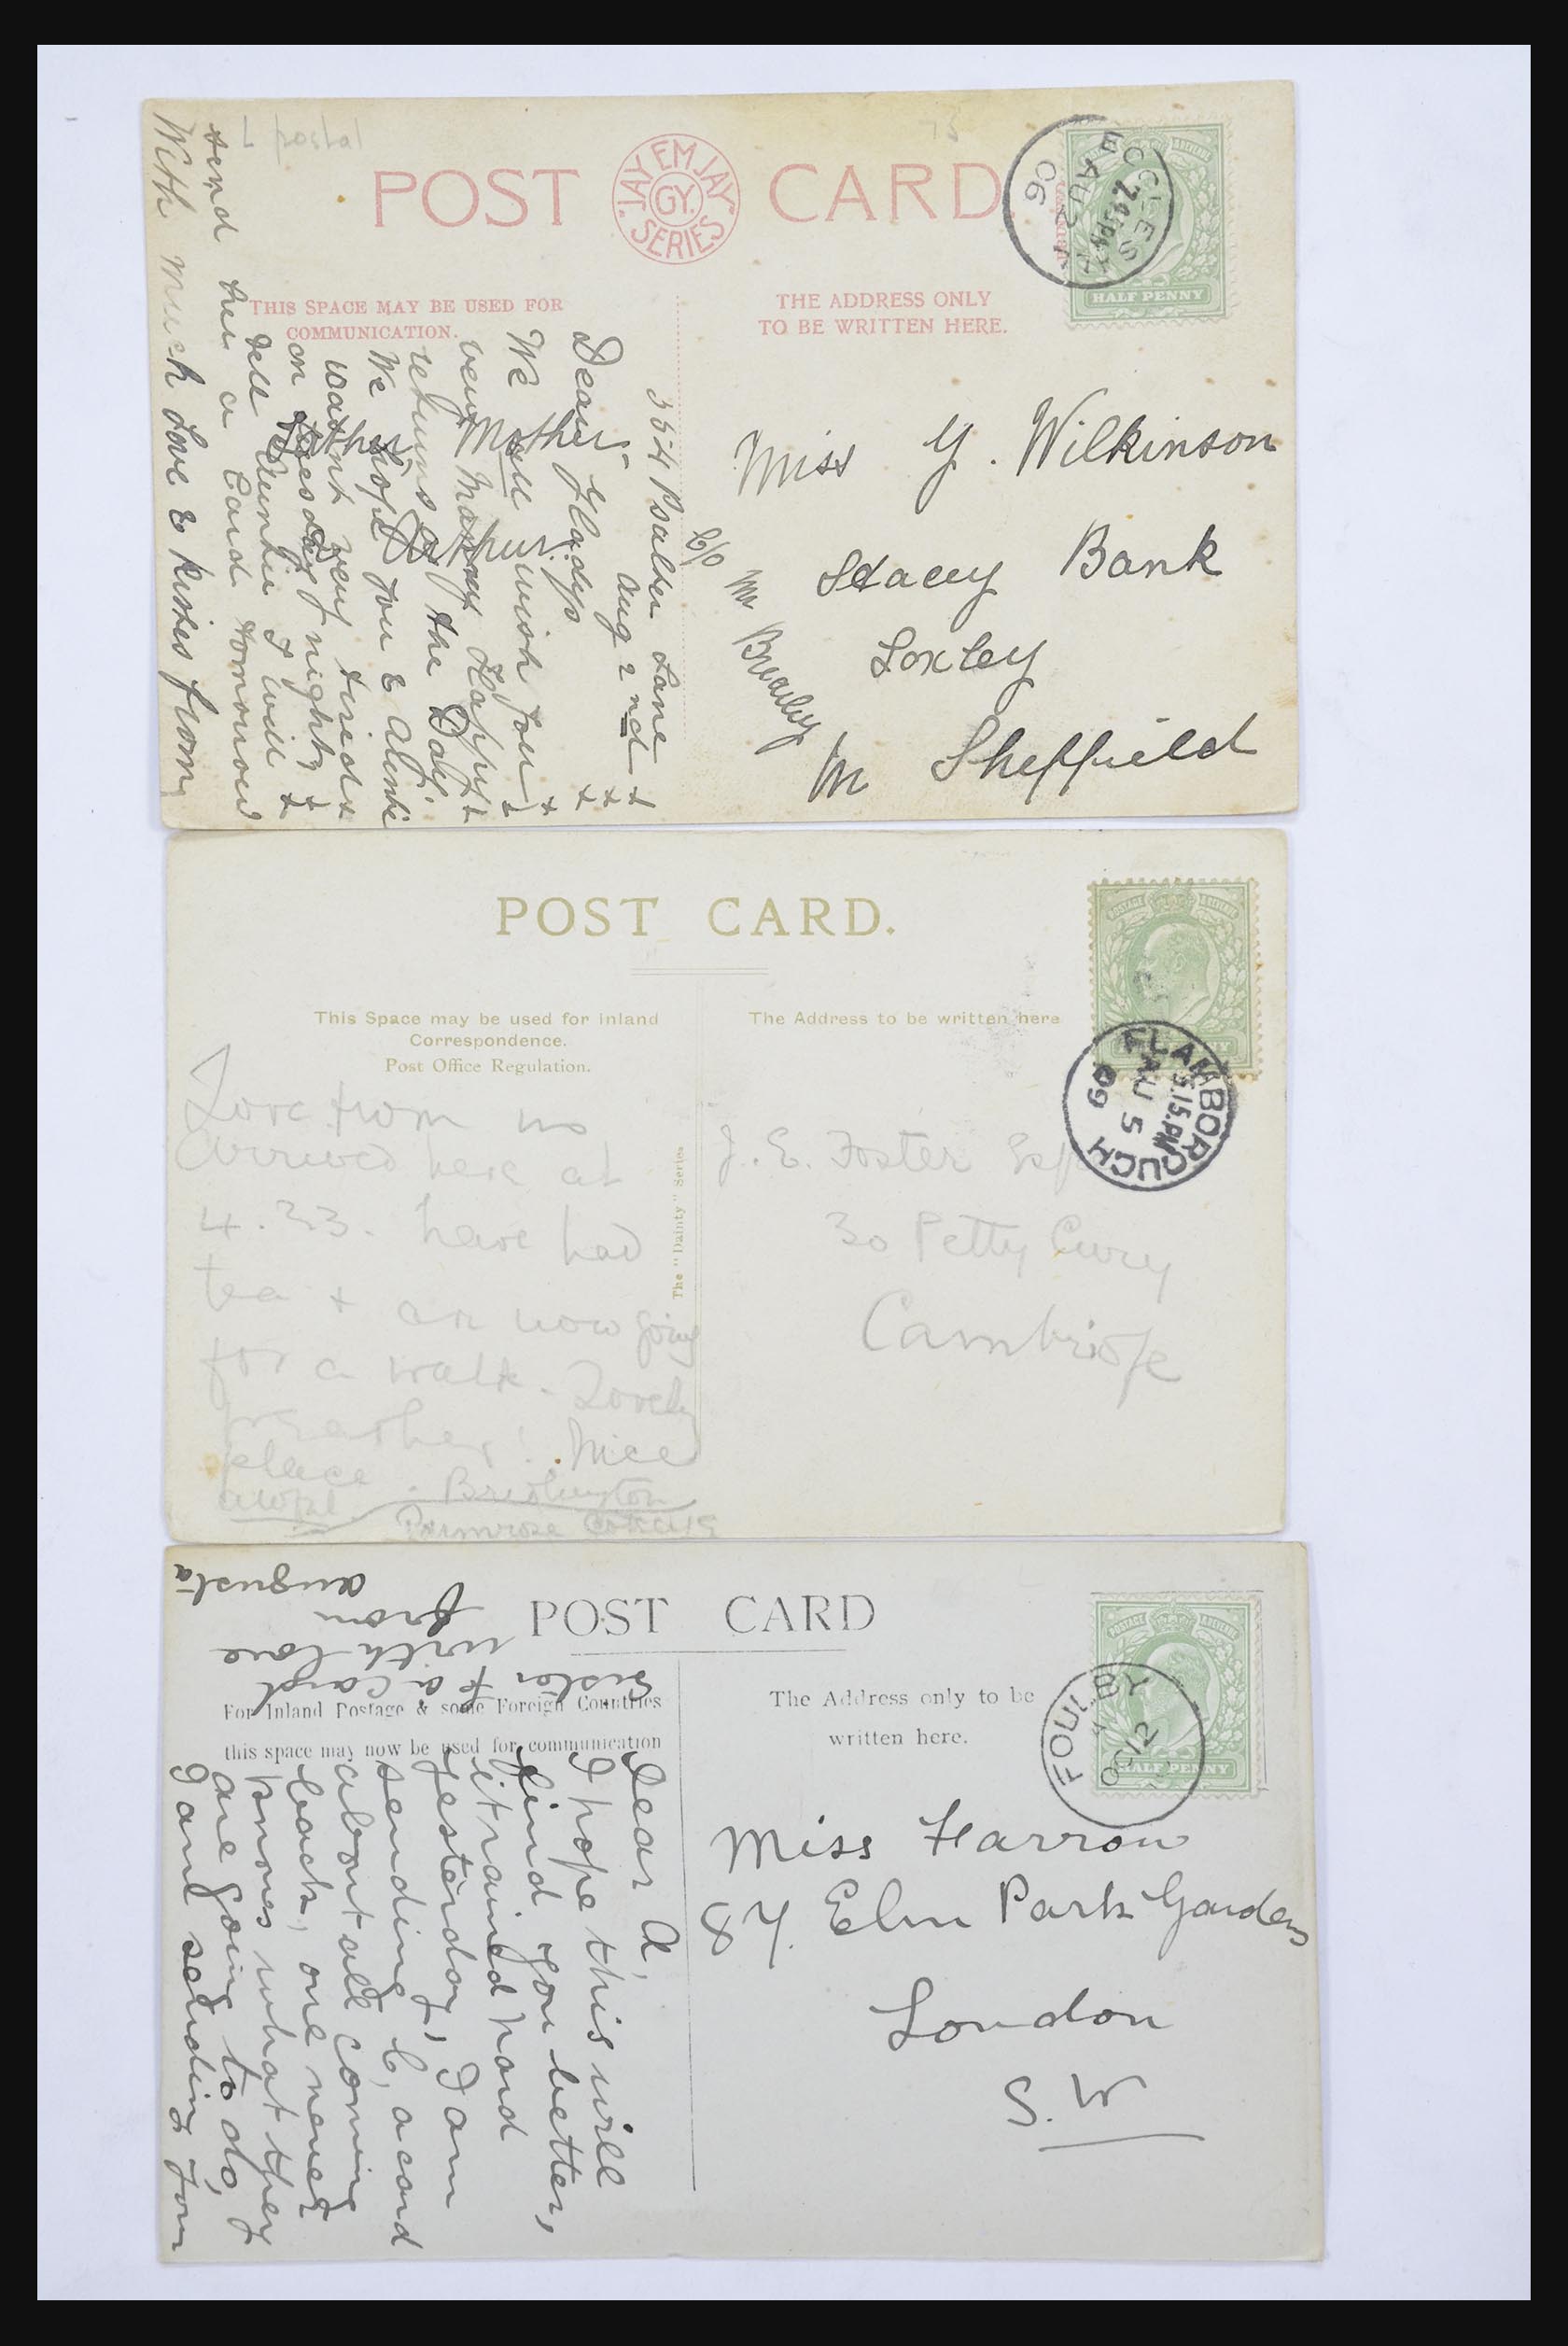 L postal
POST CARD
JAY EM JAY
GY.
SERIES
THIS SPACE MAY BE USED FOR
COMMUNICATION.
THE ADDRESS ONLY
TO BE WRITTEN HERE.
HALF PENNY
AU 2
06
354 Psalter Lane
Aug 2nd
Dear Gladys
We all wish you
very many Happy
returns of the Day.
We hope you &
want very tired
on Tuesday night
tell Auntie I will
send her a Card tomorrow
With much Love & kisses from
Father Mother
Arthur
Miss G. Wilkinson
c/o Mr Brearley
Stacey Bank
Loxley
Nr Sheffield
POST CARD.
This Space may be used for Inland
Correspondence.
Post Office Regulation.
The Address to be written here
FLAMBOROUGH
5.15.PM
AU 5
09
The "Dainty" Series
Love from us
arrived here at
4.33. have had
tea + are now going
for a walk. Lovely
weather! Nice
place. Bridlington
awful
Primrose Cottage
J. E. Foster Esq
30 Petty Cury
Cambridge
POST CARD
For Inland Postage & some Foreign Countries
this space may now be used for communication
The Address only to be
written here.
POSTAGE & REVENUE
HALF PENNY
FOULBY
OC 12
Dear A,
I hope this will
find you better,
it rained hard
yesterday, I am
sending C, a card
about all coming
back, one never
knows what they
are going to do,
I am sending your
sister a card
with love
from
Augusta
Miss Farrow
87. Elm Park Gardens
London
S.W